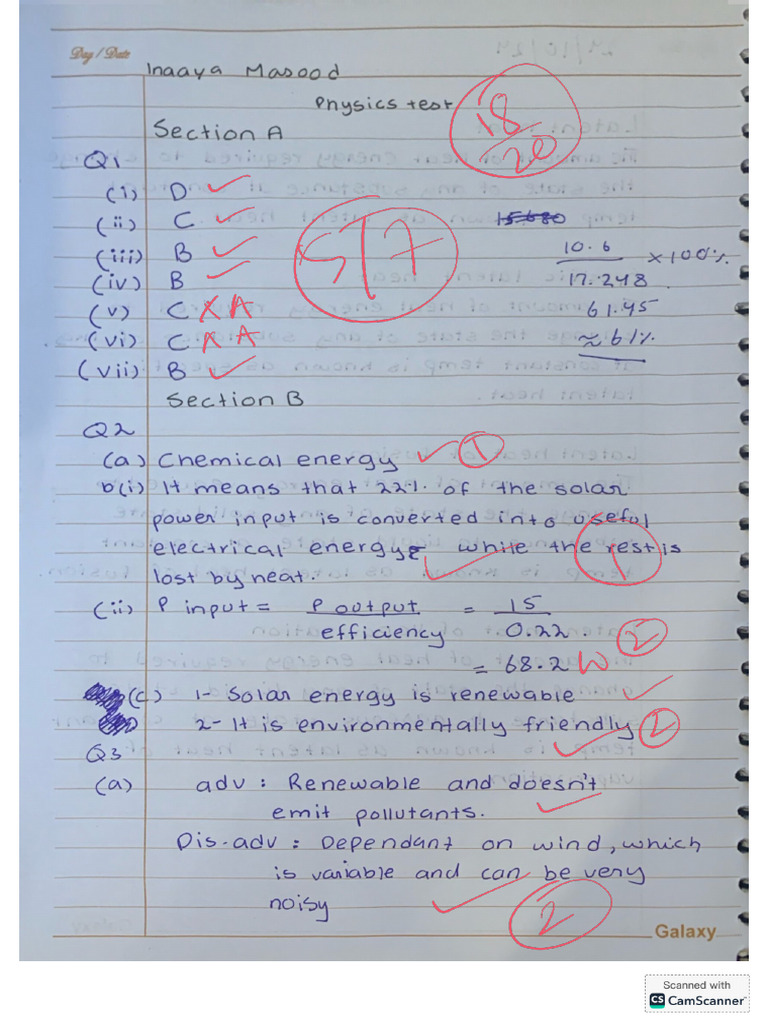 Day / Date
Inaaya Masood
Physics test
18/20
Section A
Q1
(i) D ✓
(ii) C ✓ 15680
(iii) B ✓ 5/7 10.6 × 100%
(iv) B ✓ 17.248
(v) C X A 61.45
(vi) C X A ≈ 61%
(vii) B ✓
Section B
Q2
(a) Chemical energy ✓ 1
b(i) It means that 22% of the solar
power input is converted into useful
electrical energy while the rest is
lost by heat. ✓ 1
(ii) P input = P output / efficiency = 15 / 0.22 2
= 68.2 W
(c) 1- Solar energy is renewable ✓
2- It is environmentally friendly ✓ 2
Q3
(a) adv : Renewable and doesn't
emit pollutants. ✓
Dis-adv : Dependant on wind, which
is variable and can be very
noisy ✓ 2
Galaxy
Scanned with
CS CamScanner